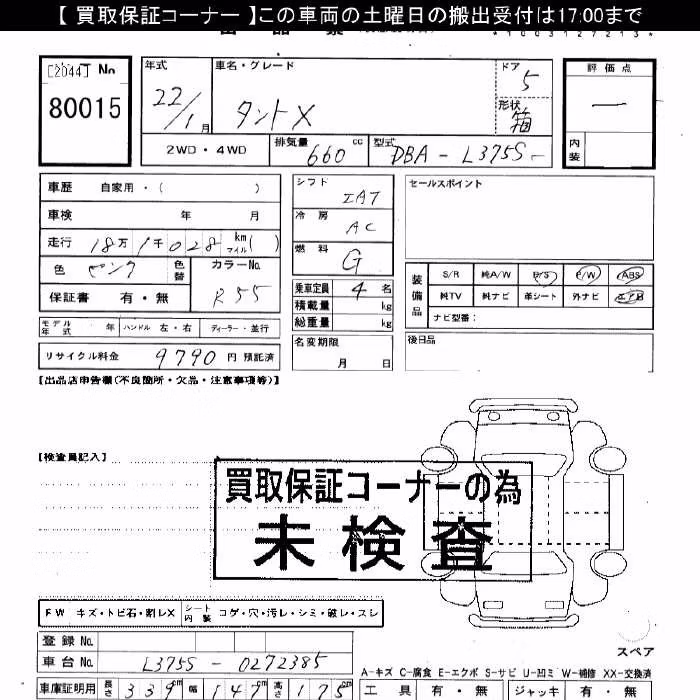 【 買取保証コーナー 】この車両の土曜日の搬出受付は17:00まで
*1003127213*
[2044] No
80015
年式 22/1月
車名・グレード タントX
ドア 5
形状 箱
評価点 —
内装
2WD・4WD
排気量 660 cc
型式 DBA-L375S-
車歴 自家用・( )
車検 年 月
走行 18万1千028 km マイル( )
色 ピンク 色替
カラーNo. R55
保証書 有・無
シフト IAT
冷房 AC
燃料 G
乗車定員 4 名
積載量 kg
総重量 kg
セールスポイント
装備品
S/R 純A/W P/S P/W ABS
純TV 純ナビ 革シート 外ナビ エアB
ナビ型番:
モデル年式 年 ハンドル 左・右 ディーラー・並行
リサイクル料金 9790 円 預託済
名変期限 月 日
後日品
【出品店申告欄(不良箇所・欠品・注意事項等)】
【検査員記入】
買取保証コーナーの為
未検査
FW キズ・トビ石・割レX シート内装 コゲ・穴・汚レ・シミ・破レ・スレ
登録 No.
車台 No. L375S-0272385
スペア
A-キズ C-腐食 E-エクボ S-サビ U-凹ミ W-補修 XX-交換済
車庫証明用 長さ 339cm 幅 147cm 高さ 175cm
工具 有・無 ジャッキ 有・無